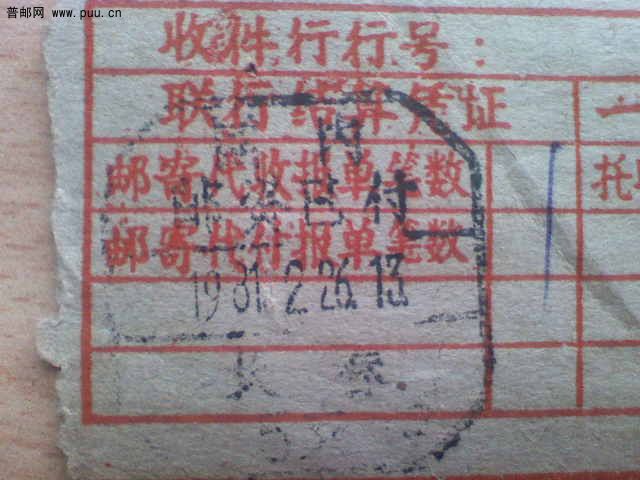 普邮网 www.puu.cn
收件行行号：
联行结算凭证
一
国内
邮寄代收报单笔数
托
邮资已付
邮寄代付报单笔数
1981.2.26.13